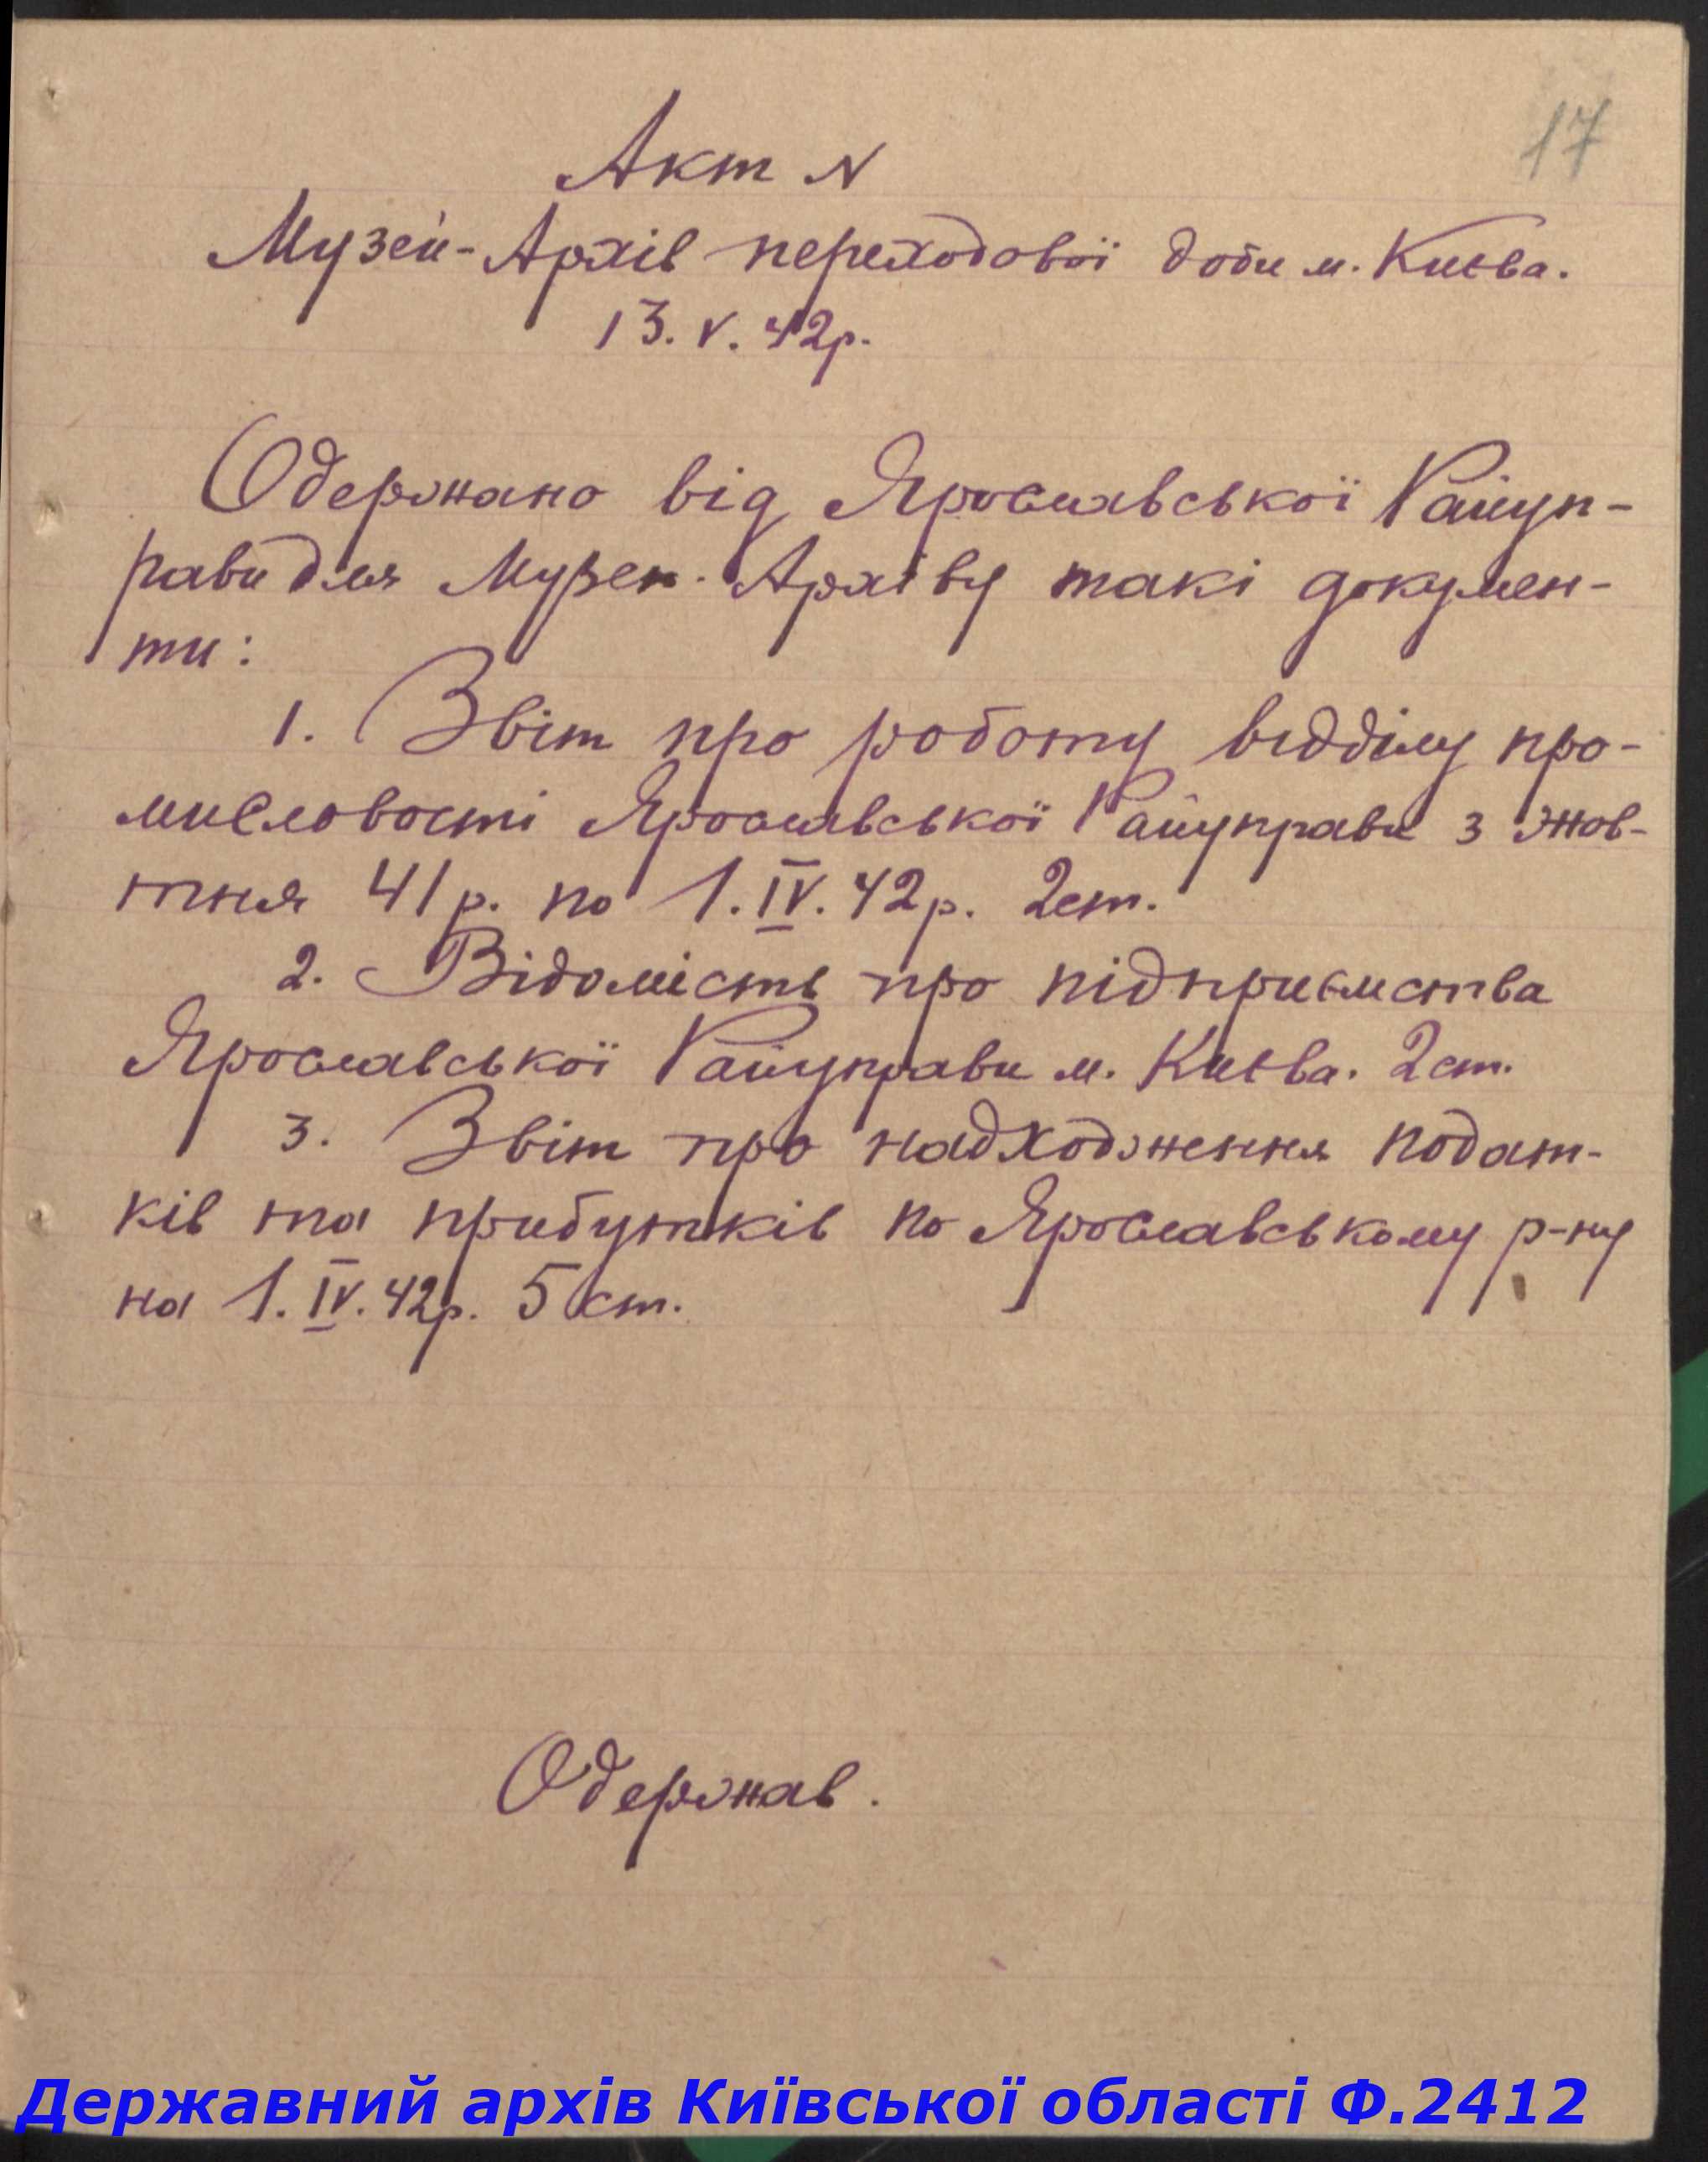 17
Акт №
Музей-Архів переходової доби м. Києва.
13. V. 42р.
Одержано від Ярославської Райуп-
рави для Музея-Архіву такі докумен-
ти:
1. Звіт про роботу відділу про-
мисловості Ярославської Райуправи з жов-
тня 41р. по 1. IV. 42р. 2ст.
2. Відомість про підприємства
Ярославської Райуправи м. Києва. 2ст.
3. Звіт про надходження подат-
ків та прибутків по Ярославському р-ну
на 1. IV. 42р. 5 ст.
Одержав.
Державний архів Київської області Ф.2412